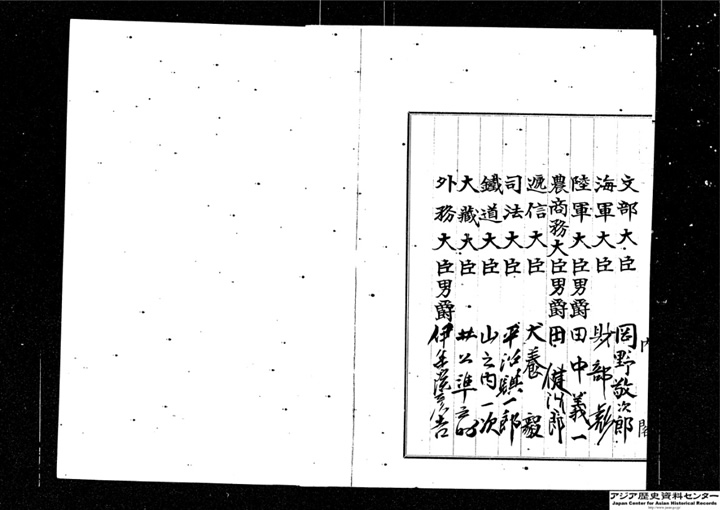 文部大臣 岡野敬次郎
海軍大臣 財部彪
陸軍大臣男爵 田中義一
農商務大臣男爵 田健治郎
遞信大臣 犬養毅
司法大臣 平沼騏一郎
鐵道大臣 山之内一次
大藏大臣 井上準之助
外務大臣男爵 伊集院彦吉
内閣
アジア歴史資料センター
Japan Center for Asian Historical Records
http://www.jacar.go.jp/